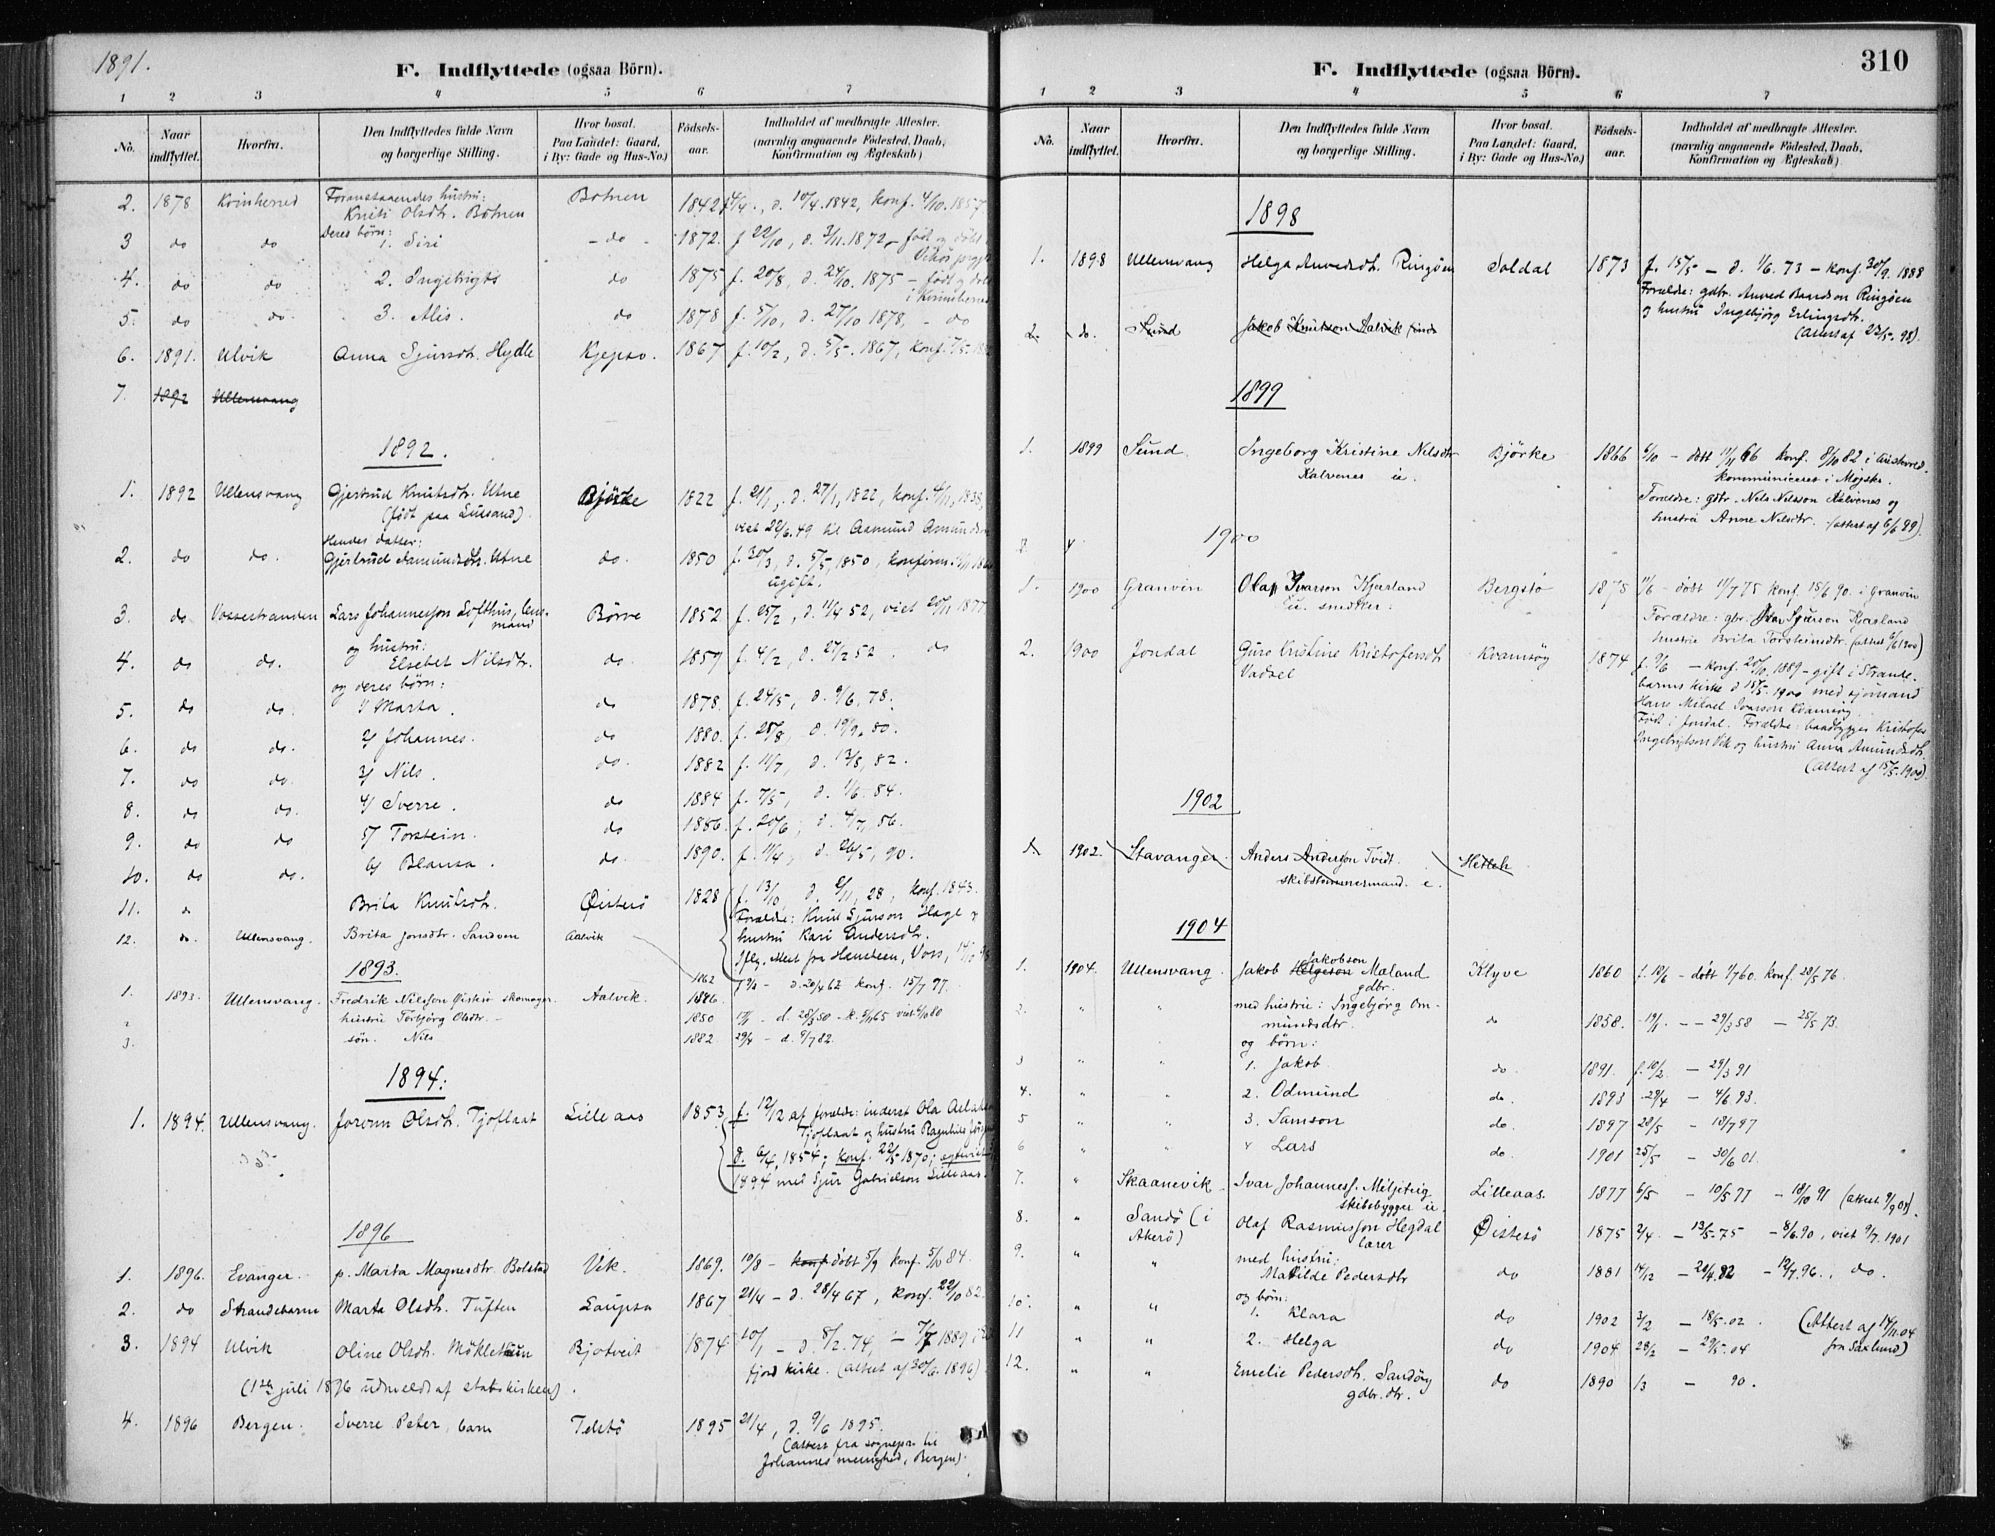 1891.
F. Indflyttede (ogsaa Börn).
1 2 3 4 5 6 7
No. Naar indflyttet. Hvorfra. Den Indflyttedes fulde Navn og borgerlige Stilling. Hvor bosat. Paa Landet: Gaard, i By: Gade og Hus-No.) Födsels-aar. Indholdet af medbragte Attester. (navnlig angaaende Födested, Daab, Konfirmation og Ægteskab)
2. 1878 Kvinherred Foranstaaendes hustru: Kniti Olsdtr. Botnen Botnen 1842 d. 10/4. 1842, konf. 4/10. 1857
Deres börn:
3 do do 1. Siri - do - 1872. f. 22/10, d. 3/11. 1872, - födt og döbt
4. do do 2. Ingebrigt do 1875 f. 20/8, d. 24/10. 1875 - födt og döbt i Kvinherred
5. do do 3. Alis. do 1878 f. 5/10, d. 27/10 1878, - do
6. 1891. Ulvik Anna Sjursdtr. Hydle Kjepso. 1867 f. 10/2, d. 5/5. 1867, konf.
7. 1892 Ullensvang
1892.
1. 1892 Ullensvang Gjertrud Knutsdtr. Utne Bjørke 1822 f. 21/1, d. 27/1, 1822, konf. 4/11, 1838,
viet 22/6. 49 til Aamund Amundson
Hendes datter:
2. do do. Gjertrud Aamundsdtr. Utne do. 1850 f. 30/3, d. 5/5, 1850, konfirm.
ugift.
3. do Vossestranden Lars Johannesson Lofthus, lensmand Børve 1852 f. 25/2, d. 11/4 52, viet 20/11 1877
og hustru:
4. do do. Elsebet Nilsdtr. do. 1857 f. 4/2, d. 27/2 52. do
og deres börn:
5. do do. 1/ Marta. do 1878. f. 24/5, d. 9/6, 78.
6. do do. 2/ Johannes. do 1880. f. 28/8, d. 19/9. 80.
7. do do. 3/ Nils. do. 1882 f. 11/7, d. 13/8, 82.
8. do do. 4/ Sverre. do 1884 f. 7/5, d. 1/6. 84.
9. do do 5/ Torstein. do 1886. f. 20/6; d. 4/7, 86.
10. do do. 6/ Blansa. do. 1890. f. 11/4, d. 26/5, 90.
11. Brita Knutsdtr. Øistesö 1828 f. 13/10, d. 2/11, 28, konf. 1843.
Forældre: Knut Sjurson Hage og
hustru Kari Andersdtr.
12. do. Ullensvang. Brita Jonsdtr. Sandven Aalvik 1862 d. 20/4 62 konf. 15/7 77.
1893.
1. 1893. Ullensvang. Fredrik Nilsson Øistesø skomager. Aalvik. 1886.
2 hustru Torbjørg Olsdtr. - 1850 d. 28/3 50 - k. 5/11 65 viet 6/10 80
3. sön. Nils 1882. 29/4 - d. 9/7 82.
1894.
1. 1894. Ullensvang. Jorunn Olsdtr. Tjoflaat Lilleaas 1853 f. 12/12 af foreldr: inderst Ola Aslakson
Tjoflaat og hustru Ragnhild
d. 6/4, 1854; konf. 22/5 1870;
1894 med Sjur Gabrielson Lilleaas.
1896
1. 1896. Evanger. p. Marta Magnesdtr. Bolstad Vik. 1869. 10/8 - konf döbt 5/9 konf. 5/10 84.
2. do Strandebarm Marta Olsdtr. Tuften Laupsa 1867 21/4 - d. 28/4 67, konf. 22/10 82.
3. 1894 Ulvik Oline Olsdtr. Mökletun Bjotveit 1874 10/1 - d. 8/2. 74, - 7/7 1889
(1ste juli 1896 udmeldt af statskirken). fjord kirke. (attest af 30/6. 1896)
4. 1896 Bergen. Sverre Peter, barn Telstö 1895 21/4, d. 9/6 1895.
(attest fra sognepr. til
Johannes menighed, Bergen).
310
F. Indflyttede (ogsaa Börn).
1 2 3 4 5 6 7
No. Naar indflyttet. Hvorfra. Den Indflyttedes fulde Navn og borgerlige Stilling. Hvor bosat. Paa Landet: Gaard, i By: Gade og Hus-No.) Födsels-aar. Indholdet af medbragte Attester. (navnlig angaaende Födested, Daab, Konfirmation og Ægteskab)
1898
1. 1898 Ullensvang Helga Anvedsdtr. Ringöen Soldal 1873 f. 15/5 - d. 1/6. 73 - konf. 30/9. 1888
Forældre: gdbr. Anved Baardson Ringöen
og hustru Ingebjörg Erlingsdtr.
(Attest af 23/5. 98).
2. do. Sund Jakob Knutson Aalvik
1899
1. 1899 Sund Ingeborg Kristine Nilsdtr Bjørke 1866 6/10 - döbt 11/11 66 konf. 8/10 82 i
Kalvenes u. kommuniceret i Mojskr.
Forældre: gdbr. Nils Nilsson Kalvenes og
hustru Anne Nilsdtr. (attest af 6/6 99)
1900
1. 1900 Granvin Olaf Ivarson Kjerland Bergstø 1875 11/6 - døbt 11/7 75 konf. 15/6 90. i Granvin
u. snedker. Forældre: gbr. Ivar Sjurson Kjerland
hustru Brita Torsteinsdtr.
2. 1900 Jondal Guro Kristine Kristofersdtr Kvamsøy 1874 f. 9/6 - konf. 20/10. 1889 - gift i Strande-
Vadset barms kirke d 15/5. 1900 med sjömand
Hans Mikael Ivarson Kvamsøy.
Født i Jondal. Forældre: baadbygger Kristofer
Ingebrigtson Vik og hustru Anna Amundsdtr.
(attest af 15/5. 1900).
1902
1. 1902. Stavanger. Anders Anderson Tvedt. Hetleh
skibstømmermand. u.
1904
1. 1904. Ullensvang. Jakob Helgeson Jakobson Mæland gdbr. Klyve 1860 f. 10/6 - döbt 1/7 60. konf. 28/5 76.
2. " " med hustru: Ingebjørg Om-
mundsdtr. do 1858. 19/1. - - 29/3 58 - 25/5 73.
og börn:
3 " " 1. Jakob do. 1891. f. 10/2. - 29/3 91
4. " " 2. Odmund do. 1893 29/4 - 4/6. 93.
5 " " 3. Samson do. 1897 28/5 - 18/7 97
6 " " 4 Lars do. 1901 25/5 - 30/6 01.
7. " Skaanevik Ivar Johannesf. Miljeteig Lilleaas. 1877 6/5 - 10/5 77 - 18/10 91 (attest 9/9 04).
skibsbygger u.
8. " Sandö (i Akerö) Olaf Rasmusson Hegdal Øistesö 1875 2/4. - 13/5. 75 - 8/6. 90, viet 9/7. 1901
lærer
9. " " med hustru:
Matilde Pedersdtr do 1881 14/12 - 28/4. 82 - 12/7. 96., do.
og börn:
10. " " 1. Klara do 1902 3/2 - 18/5. 02. (Attest af 14/11. 04
11 " " 2. Helga do 1904 28/2 - 29/5. 04 fra Saxlund)
12. " " Emelie Pedersdtr. Sandöy do 1890 1/3 - 90.
gdbr. dtr.